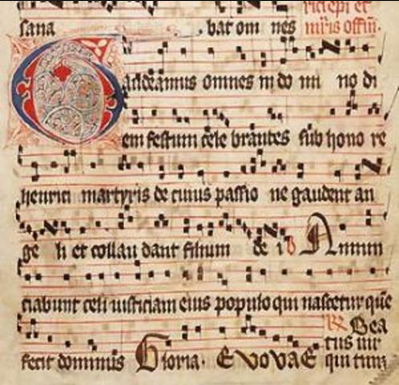 sana bat om nes
officiu.
audeamus omnes in do mi no di
em festum cele brantes sub hono re
henrici martyris de cuius passio ne gaudent an
ge li et collau dant filium de i v Annun
ciabunt celi iusticiam eius populo qui nascetur que
fecit dominus Gloria. EVOVAE
Bea
tus uir
qui tim